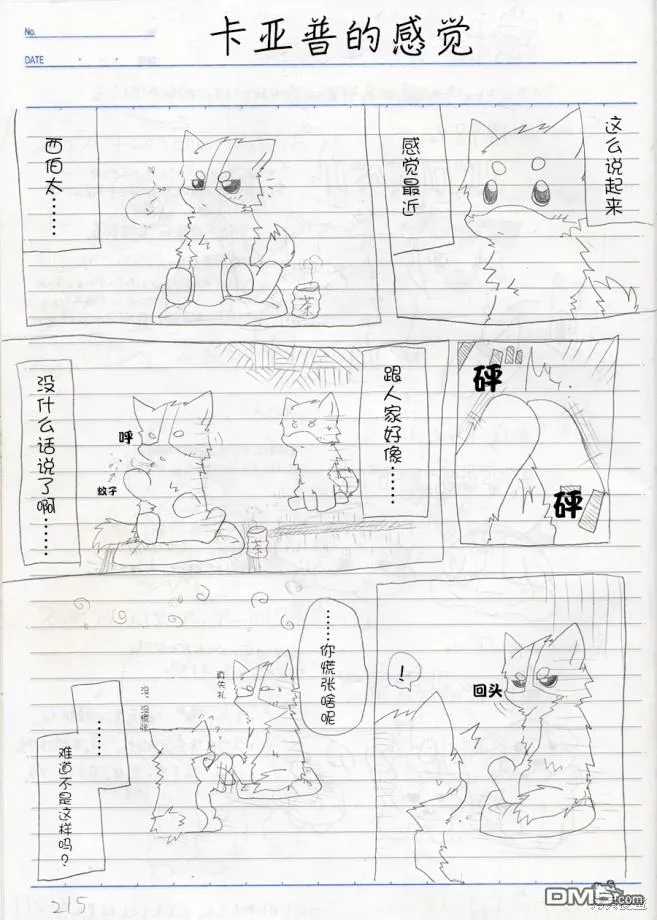 No.
DATE
卡亚普的感觉
这么说起来
感觉最近
西伯太……
茶
砰
砰
跟人家好像……
呼
蚊子
茶
没什么话说了啊……
回头
！
……你慌张啥呢
真失礼
没、没慌张
……
难道不是这样吗？
215